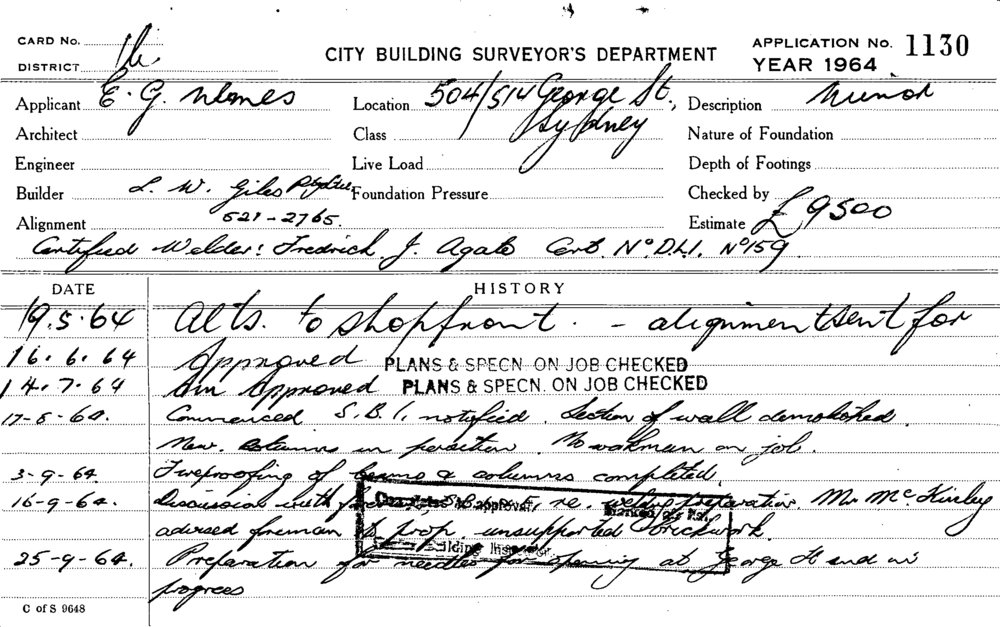 CARD No.
DISTRICT
CITY BUILDING SURVEYOR'S DEPARTMENT
APPLICATION No. 1130
YEAR 1964
Applicant E. G.
Location 504/514 George St., Sydney
Description Minor
Architect
Class
Nature of Foundation
Engineer
Live Load
Depth of Footings
Builder L. W. Giles
Foundation Pressure
Checked by
Alignment 521-2765.
Estimate £9500
Certified Welder: Fredrick J. Agato Cert. No D.L.I. No 159.
DATE HISTORY
19.5.64 Alts. to shopfront. - alignment sent for
16.6.64 Approved PLANS & SPECN. ON JOB CHECKED
14.7.64 Am approved PLANS & SPECN. ON JOB CHECKED
17-8-64. Commenced S.B.I. notified. Section of wall demolished.
New columns in position. No workman on job.
3-9-64. Fireproofing of beams & columns completed.
16-9-64. Discussion with re. preparation. Mr McKinley
advised foreman to prop unsupported brickwork.
25-9-64. Preparation for needles for opening at George St end in
progress
C of S 9648